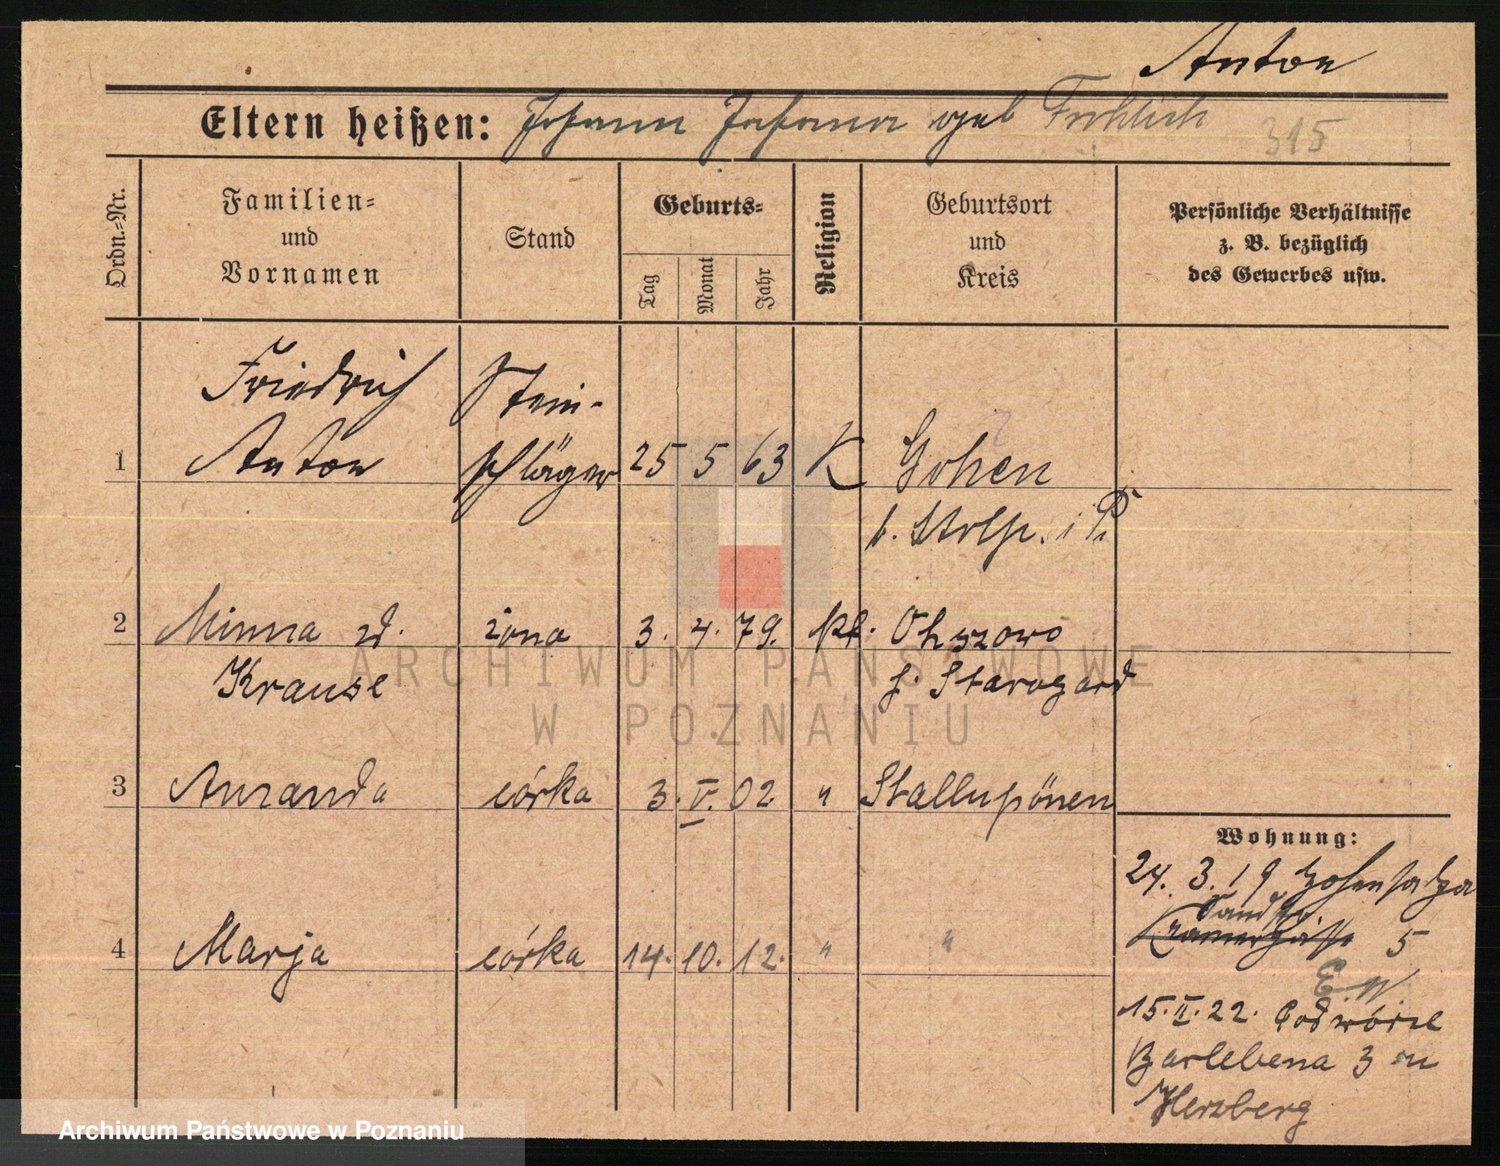 Anton
Eltern heißen: Johann Johanna geb Fröhlich 315
Ordn.-Nr.
Familien- und Vornamen
Stand
Geburts-
Tag
Monat
Jahr
Religion
Geburtsort und Kreis
Persönliche Verhältnisse
z. B. bezüglich
des Gewerbes usw.
Friedrich Stein-
1 Anton schläger 25 5 63 K Gohen
b. Stolp. i P.
2 Minna zd. żona 3. 4. 79. kt. Ohszowo
Krause p. Starogard
3 Amanda córka 3. V. 02 " Stallupönen
Wohnung:
24. 3. 19 Hohensalza
Sandstr
Kramergasse 5
4 Marja córka 14. 10. 12. " "
15. II. 22. Podwórze
Barlebena 3 m
Herzberg
ARCHIWUM PAŃSTWOWE
W POZNANIU
Archiwum Państwowe w Poznaniu